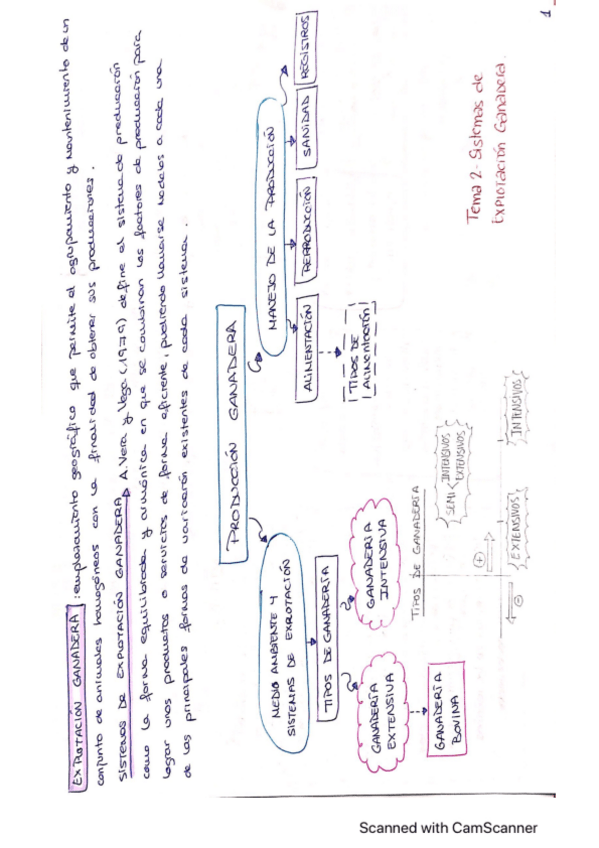 1
Tema 2- Sistemas de
Explotación Ganadera.
EXPLOTACIÓN GANADERA: emplazamiento geográfico que permite el agrupamiento y mantenimiento de un
conjunto de animales homogéneos con la finalidad de obtener sus producciones.
SISTEMAS DE EXPLOTACIÓN GANADERA → A. Vera y Vega (1979) define el sistema de producción
como la forma equilibrada y armónica en que se combinan los factores de producción para
lograr unos productos o servicios de forma eficiente, pudiendo llamarse modelos a cada una
de las principales formas de variación existentes de cada sistema.
PRODUCCIÓN GANADERA
MEDIO AMBIENTE Y
SISTEMAS DE EXPLOTACIÓN
MANEJO DE LA PRODUCCIÓN
TIPOS DE GANADERÍA
ALIMENTACIÓN
REPRODUCCIÓN
SANIDAD
REGISTROS
GANADERÍA
EXTENSIVA
GANADERÍA
INTENSIVA
TIPOS DE
ALIMENTACIÓN
GANADERÍA
BOVINA
TIPOS DE GANADERÍA
SEMI INTENSIVOS
EXTENSIVOS
⊕
⊖
EXTENSIVOS
INTENSIVOS
Scanned with CamScanner